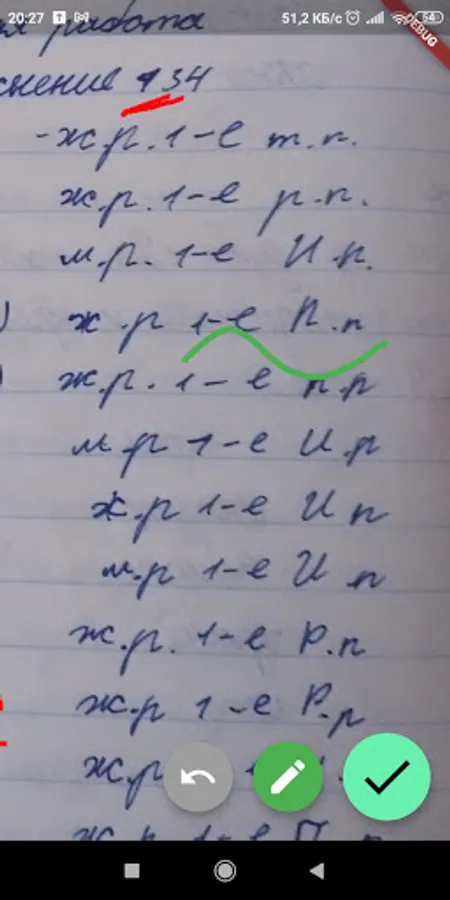 20:27 51,2 КБ/с 54
DEBUG
я работа
снение 934
-ж.р. 1-е т.п.
ж.р. 1-е р.п.
м.р. 1-е И.п.
) ж.р 1-е П.п
) ж.р. 1-е п.р
м.р 1-е И.р
ж.р 1-е И п
м.р 1-е И п
ж.р. 1-е Р.п
ж.р 1-е Р.р
ж.р
ж р 1-е П п